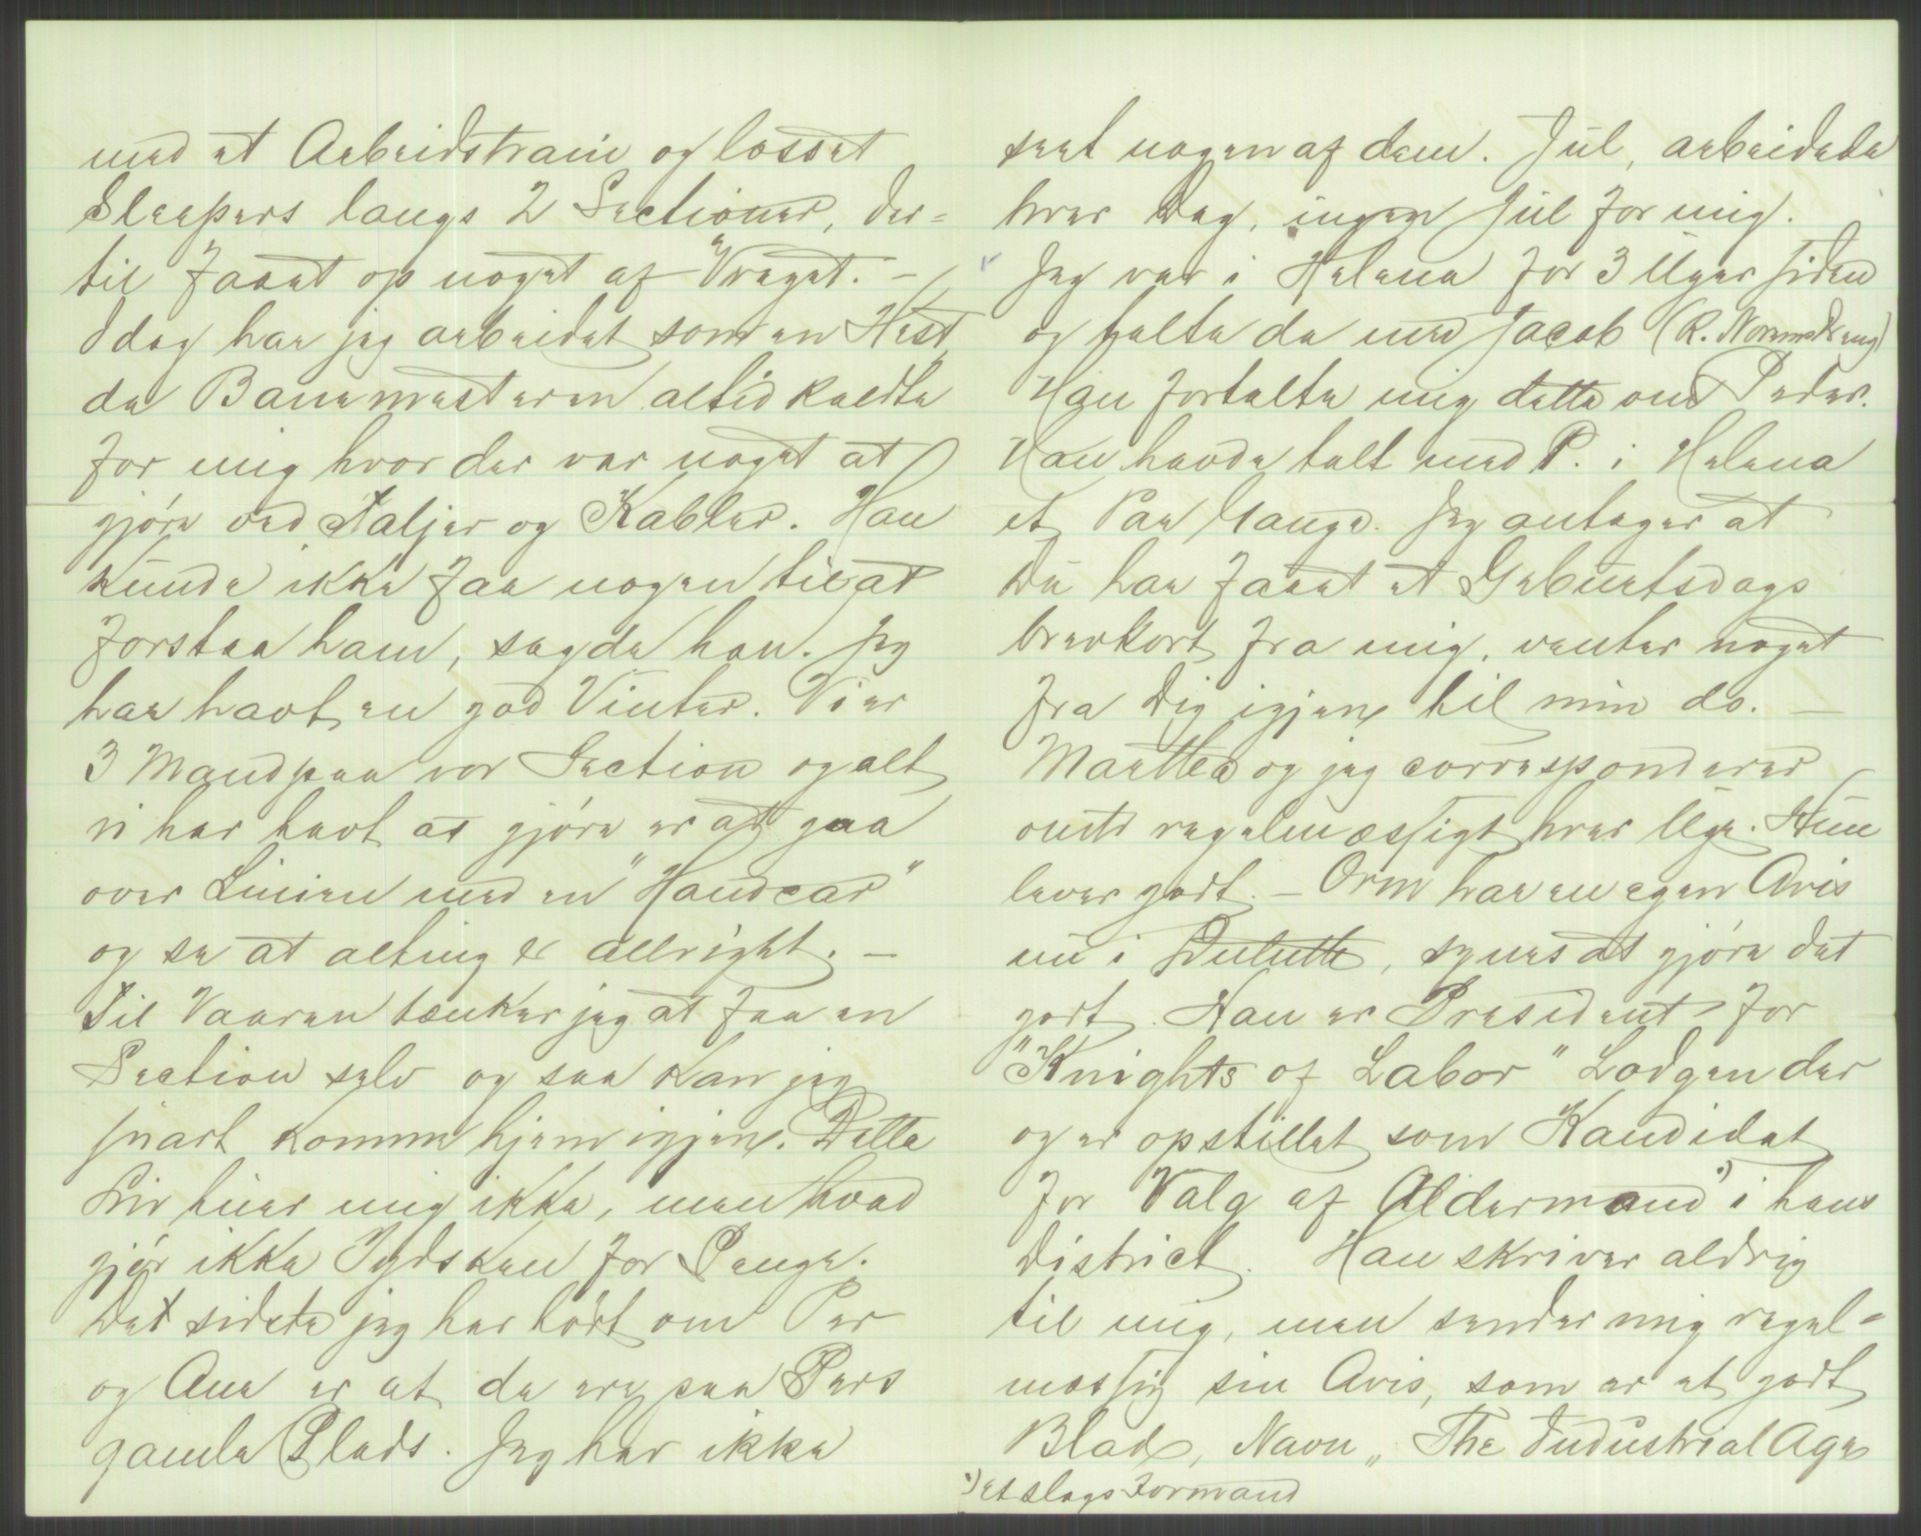 med et Arbeidstrain og losset
Sleepers langs 2 Sectioner, der=
til faaet op noget af Vraget. –
Idag har jeg arbeidet som en Hest,
da Banemesteren altid kaldte
for mig hvor der var noget at
gjöre ved Taljer og Kabler. Han
kunde ikke faa nogen til at
forstaa ham, sagde han. Jeg
har havt en god Vinter. Vi er
3 Mand paa vor Section og alt
vi har havt at gjöre er at gaa
over Linien med en "Handcar"
og se at alting er allright. –
Til Vaaren tænker jeg at faa en
Section selv og saa kan jeg
snart komme hjem igjen. Dette
Liv huer mig ikke, men hvad
gjör ikke Tydsken for Penge.
Det sidste jeg har hört om Per
og Ane er at de ere paa Pers
gamle Plads. Jeg har ikke
seet nogen af dem. Jul, arbeidede
hver Dag, ingen Jul for mig.
Jeg var i Helena for 3 Uger siden
og talte da med Jacob (R. Normodreng)
Han fortalte mig dette om Peder.
Han havde talt med P. i Helena
et Par Gange. Jeg antager at
Du har faaet et Geburtsdags
brevkort fra mig, venter noget
fra Dig igjen til min do. –
Marthea og jeg corresponderer
omtr regelmæssigt hver Uge. Hun
lever godt. – Orm har en egen Avis
nu i Duluth, synes at gjöre det
godt. Han er President for
"Knights of Labor" Lodgen der
og er opstillet som Kandidat
for Valg af Aldermand ¹) i hans
District. Han skriver aldrig
til mig, men sender mig regel=
mæssig sin Avis, som er et godt
Blad, Navn „The Industrial Age
¹) et slags Formand